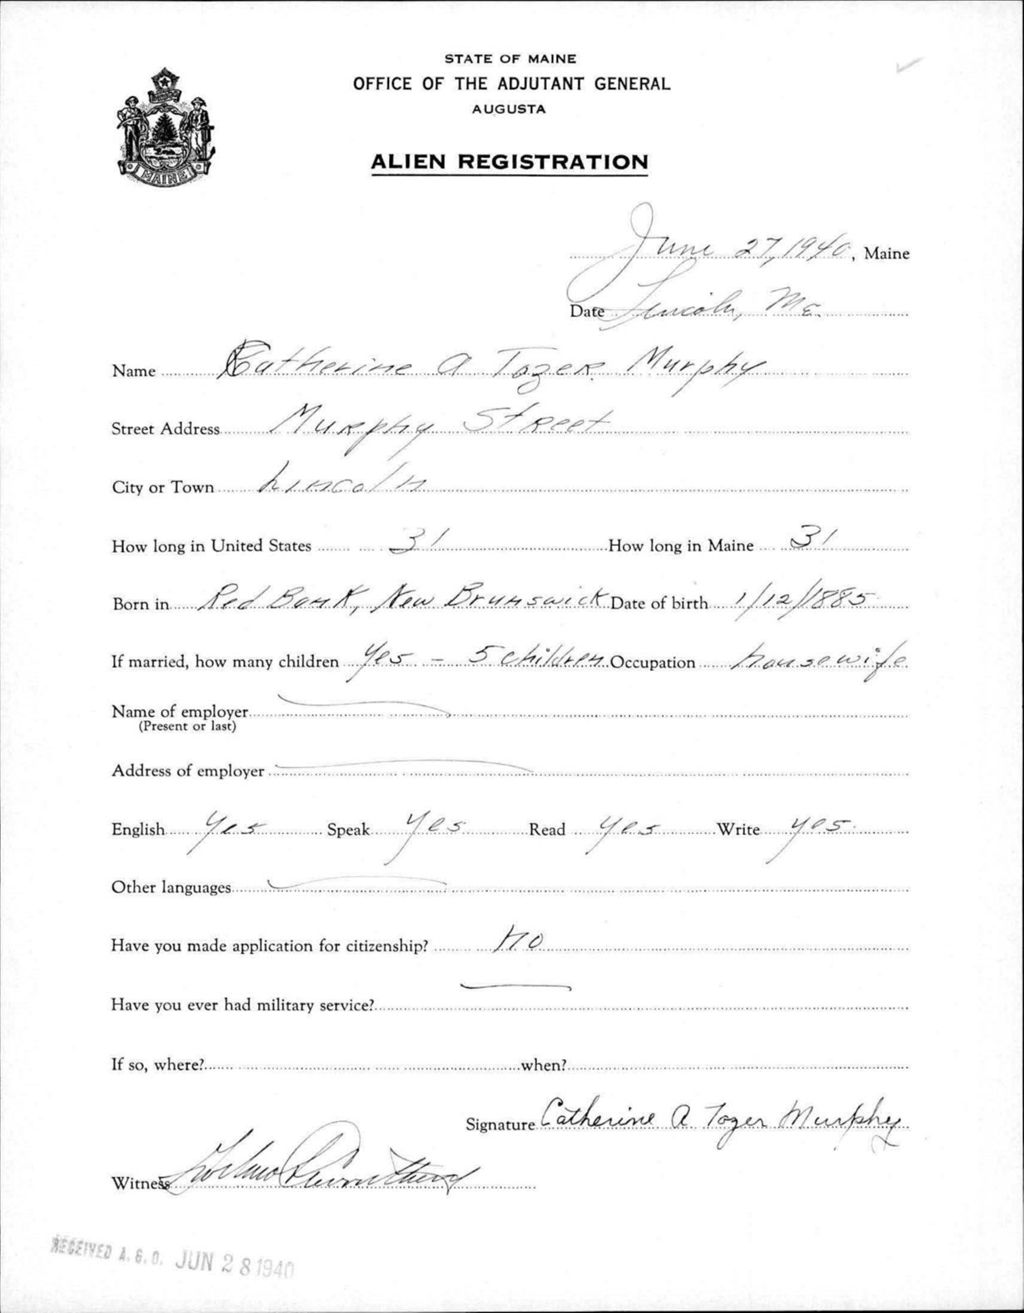 STATE OF MAINE
OFFICE OF THE ADJUTANT GENERAL
AUGUSTA
ALIEN REGISTRATION
MAINE
June 27, 1940, Maine
Date Lincoln, Me.
Name Catherine A Tozer Murphy
Street Address Murphy Street
City or Town Lincoln
How long in United States 31 How long in Maine 31
Born in Red Bank, New Brunswick Date of birth 1/12/1885
If married, how many children Yes - 5 children Occupation housewife
Name of employer
(Present or last)
Address of employer
English Yes Speak Yes Read Yes Write Yes
Other languages
Have you made application for citizenship? no
Have you ever had military service?
If so, where? when?
Signature Catherine A Tozer Murphy
Witness
RECEIVED A. G. O. JUN 28 1940